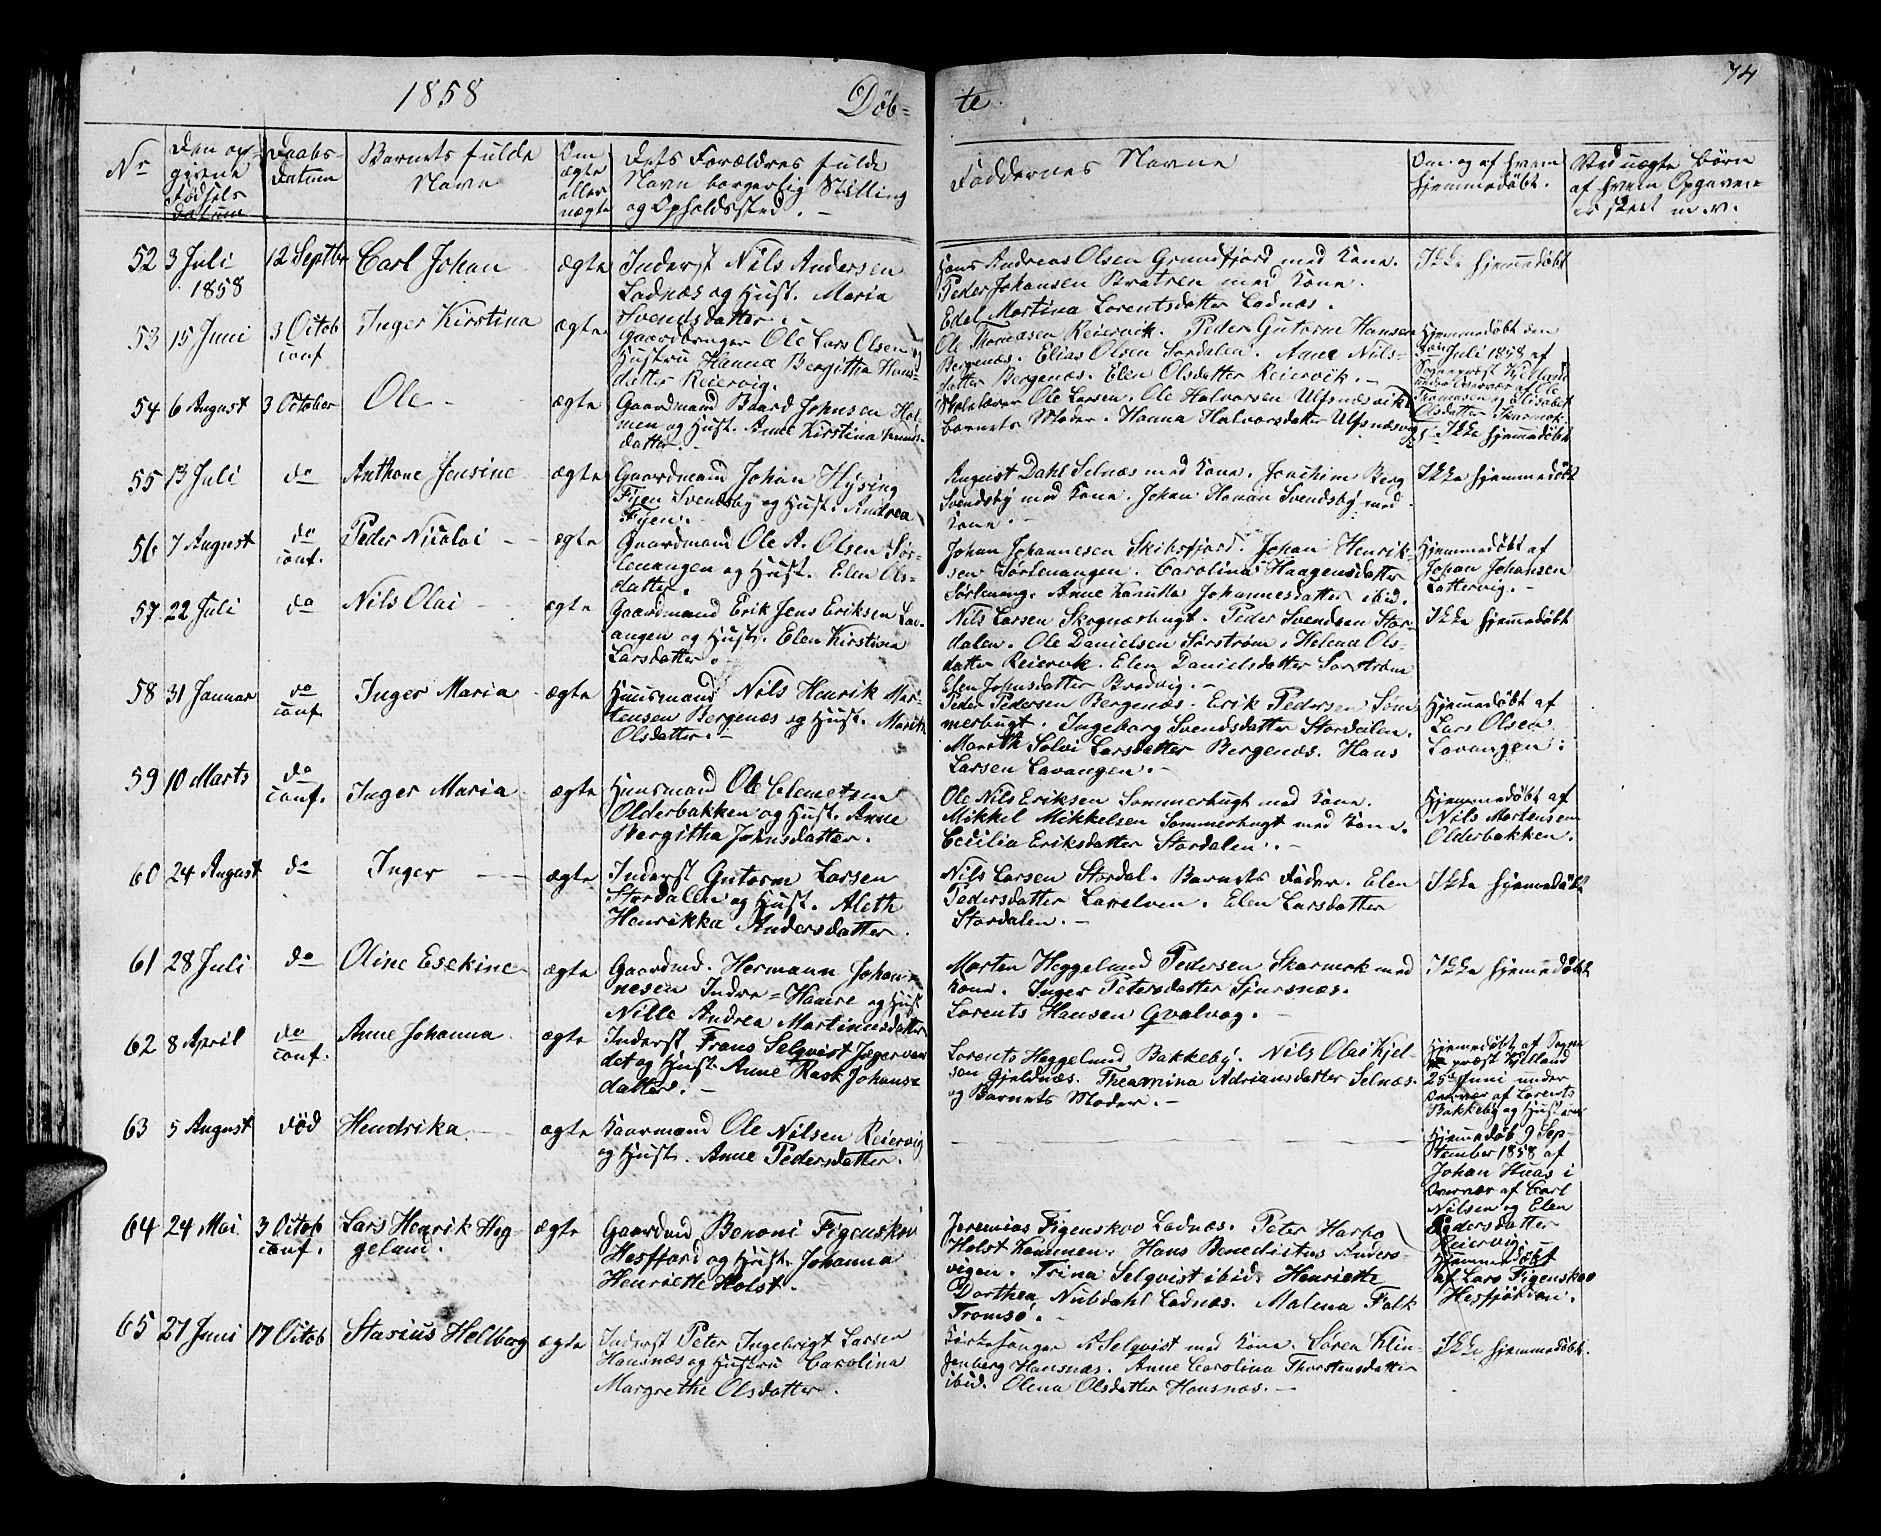 1858 Døb= te. 74
Nr
Den op=
givne
Fødsels
datum
Daabs-
datum
Barnets fulde
Navn
Om
ægte
eller
uægte
Dets Forældres fulde
Navn borgerlig Stilling
og Opholdssted. -
Faddernes Navne
Om og af hvem
hjemmedøbt.
Ved uægte Børn
af hvem Opgaven
er skeet m.v.
52 3 Juli 12 Septbr Carl Johan ægte
1858
Inderst Nils Andersen
Ladnæs og Hust. Maria
Svendsdatter. -
Hans Andreas Olsen Grundfjord med Kone.
Peder Johansen Bratren med Kone.
Edel Martina Lorentsdatter Ladnæs.
Ikke hjemmedøbt
53 15 Juni 3 Octob Inger Kirstina ægte
conf
Gaardbruger Ole Lars Olsen og
Hustru Hanna Bergitha Hans-
datter Reiervig.
Ole Thomasen Reiervik. Peder Gutorm Hansen
Bergenæs. Elias Olsen Sordalen. Anne Nils-
datter Bergenæs. Elen Olsdatter Reiervik. -
Hjemmedøbt den
Juli 1858 af
Sognepræst Kjelland
under Overvær af Ole
Thomasen og Elisabet
Olsdatter Skarmok.
54 6 August 3 October Ole - ægte
Gaardmand Baard Johnsen Hol-
men og Hust. Anne Kirstina
datter. -
Skolelærer Ole Larsen. Ole Halvorsen Ulfsnæsvik
barnets Moder. Hanna Halvorsdatter Ulfsnæsvig
Ikke hjemmedøbt
55 13 Juli do Anthone Jensine - ægte
Gaardmand Johan Hysing
Fyen Svendsby og Hust. Andrea
Fyen. -
August Dahl Selnæs med Kone. Joachim Berg
Svendsby med Kone. Johan Hanan Svendsby med
Kone. -
Ikke hjemmedøbt
56 7 August do Peder Nicolai - ægte
conf.
Gaardmand Ole A. Olsen Sør-
lenangen og Hust. Elen Ols-
datter.
Johan Johannesen Skibsfjord. Johan Henrik-
sen Sørlenangen. Carolina Haagensdatter
Sørlenang. Anne Kanutta Johannesdatter ibid.
Hjemmedøbt af
Johan Johansen
Lattervig. -
57 22 Juli do Nils Olai - ægte
Gaardmand Erik Jens Eriksen Lav-
angen og Hust. Elen Kirstina
Larsdatter.
Nils Larsen Skognæsbugt. Peder Svendsen Stor-
dalen. Ole Danielsen Sørstrøm. Helena Ols-
datter Reiervik. Elen Danielsdatter Sorstrøm
Elen Johnsdatter Bredvig. -
Ikke hjemmedøbt
58 31 Januar do Inger Maria - ægte
conf
Huusmand Nils Henrik Mar-
tensen Bergenæs og Hust. Marith
Olsdatter. -
Peder Pedersen Bergenæs. Erik Pedersen Som
merbugt. Ingeborg Svendsdatter Stordalen.
Marith Solvi Larsdatter Bergenæs. Hans
Larsen Lavangen. -
Hjemmedøbt af
Lars Olsen
Lavangen.
59 10 Marts do Inger Maria - ægte
conf.
Huusmand Ole Clemetsen
Olderbakken og Hust. Anne
Bergitha Johnsdatter.
Ole Nils Eriksen Sommerbugt med Kone.
Mikkel Mikkelsen Sommerbugt med Kone.
Cecilia Eriksdatter Stordalen. -
Hjemmedøbt af
Nils Martensen
Olderbakken.
60 24 August do Inger - ægte
Inderst Gutorm Larsen
Stordalen og Hust. Aleth
Henrikka Andersdatter.
Nils Larsen Stordal. Barnets Fader. Elen
Pedersdatter Lavelven. Elen Larsdatter
Stordalen. -
Ikke hjemmedøbt
61 28 Juli do Oline Esekine - ægte
Gaardmd. Hermann Johan-
nesen Indre=Hamre og Hust
Nille Andrea Martinusdatter
Morten Heggelund Pedersen Skarmok med
Kone. Inger Petersdatter Sjursnæs.
Lorents Hansen Qvalvag. -
Ikke hjemmedøbt
62 8 April do Anne Johanna - ægte
conf.
Inderst Frans Selqvist Jægervan
det og Hust. Anne Rask Johans=
datter. -
Lorents Heggelund Bakkeby. Nils Olai Kjel-
sen Gjeldnæs. Theamina Adriansdatter Selnæs.
og Barnets Moder. -
Hjemmedøbt af Sogne
præst Kjelland
25de Juni under
Overvær af Lorents
Bakkeby og Hustrue
63 5 August død Hendrika - ægte
Gaarmand Ole Nilsen Reiervig
og Hust. Anne Pedersdatter.
Hjemmedøb 9 Sep-
tember 1858 af
Johan Huas i
Overvær af Carl
Nilsen og Elen
Pedersdatter
Reiervig.
64 24 Mai 3 Octob Lars Henrik Heg- ægte
conf. gelund.
Gaardmd Benoni Figenskov
Hesfjord og Hust. Johanna
Henriette Holst.
Jeremias Figenskov Ladnæs. Peter Harbo
Holst Kammen. Hans Benedictus Anders-
vigen. Trina Selqvist ibid. Henriette
Dorthea Nubdahl Ladnæs. Malena Falk
Tromsø. -
Hjemmedøbt
af Lars Figenskov
Hesfjorden.
65 27 Juni 17 Octob Stasius Hellberg ægte
Inderst Peter Ingebrigt Larsen
Hansnæs og Hustru Carolina
Margrethe Olsdatter.
Kirkesanger A Selqvist med Kone. Søren Klin-
genberg Hansnæs. Anne Carolina Thorstensdatter
ibid. Olena Olsdatter Hansnæs. -
Ikke hjemmedøbt.